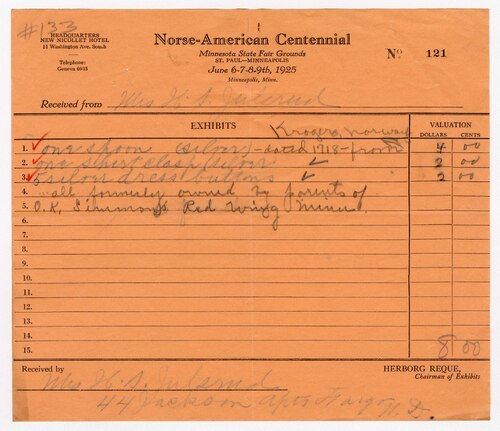 #133
HEADQUARTERS
NEW NICOLLET HOTEL
11 Washington Ave. South
Telephone:
Geneva 6935
Norse-American Centennial
Minnesota State Fair Grounds
ST. PAUL—MINNEAPOLIS
June 6-7-8-9th, 1925
Minneapolis, Minn.
No 121
Received from Mrs H. S.
EXHIBITS
VALUATION
DOLLARS CENTS
Kragerø, Norway
1. one spoon (silver) - dated 1718 - from 4 00
2. one shirt clasp (silver ✓ 2 00
3. 5 silver dress buttons ✓ 2 00
4. all formerly owned by parents of
5. O.K. Simmons Red Wing Minn.
6.
7.
8.
9.
10.
11.
12.
13.
14.
15. 8 00
Received by
HERBORG REQUE,
Chairman of Exhibits
Mrs H. S.
44 Jackson Apts Fargo N.D.